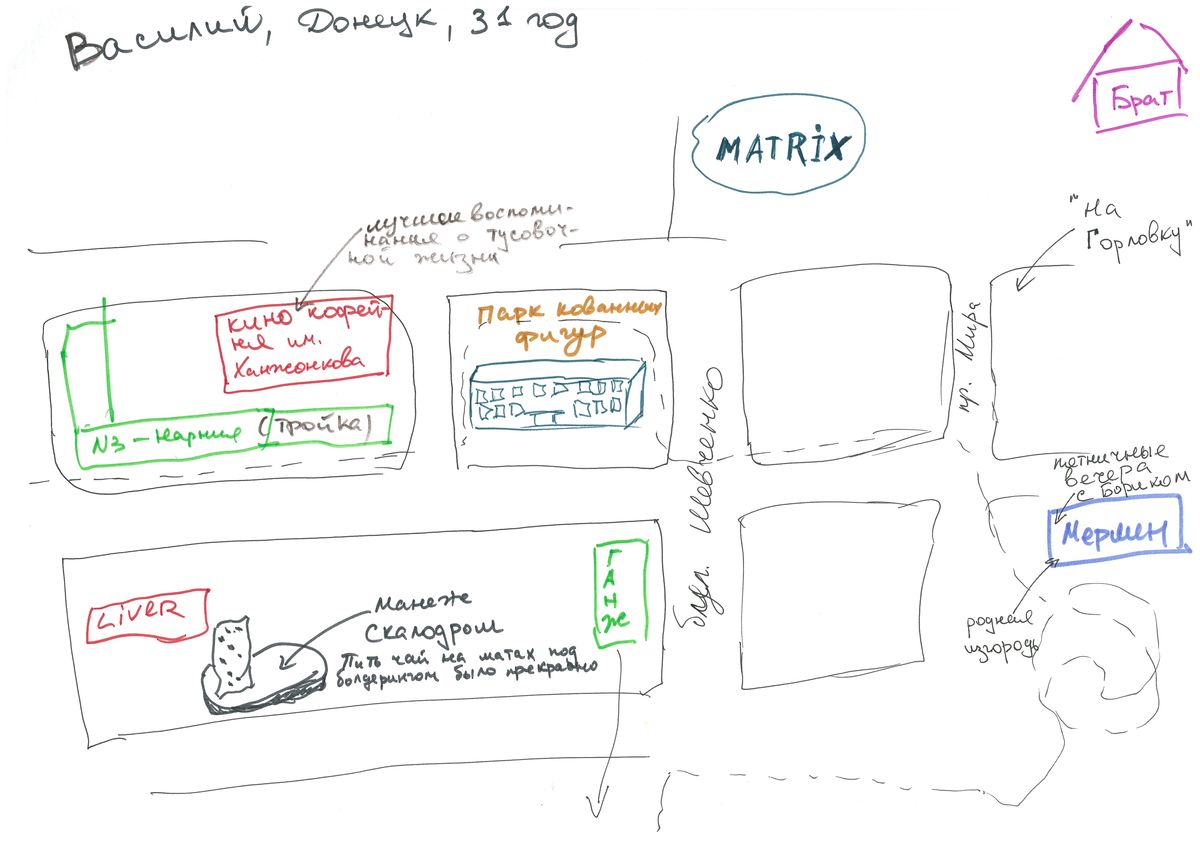 Василий, Донецк, 31 год
Брат
MATRIX
лучшие воспоми-
нания о тусовоч-
ной жизни
"На
Горловку"
кино кофей-
ня им.
Ханжонкова
Парк кованных
фигур
пр. Мира
N3 - Нарния (тройка)
бул. Шевченко
пятничные
вечера
с Бориком
Мермин
родная
изгородь
LIVER
ГАНЖ
Манеж
Скалодром
Пить чай на матах под
болдерингом было прекрасно